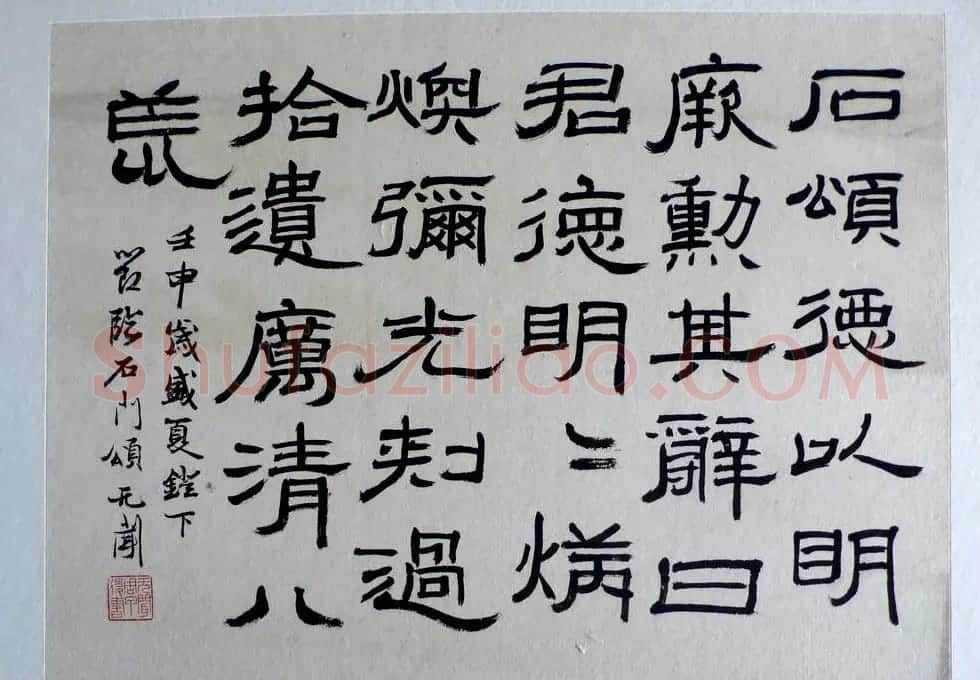 石頌德以明
厥勳其辭曰
君德明〻炳
煥彌光刺過
拾遺厲清八
荒
壬申歲盛夏鐙下
節臨石門頌 无聞
Shufaziliao.COM